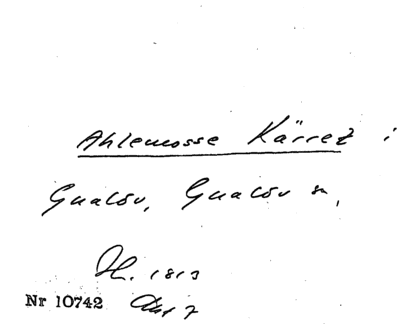 Ahlemosse Kärret i
Gualöv, Gualöv sn,
Sk. 1813
Nr 10742 Akt 7